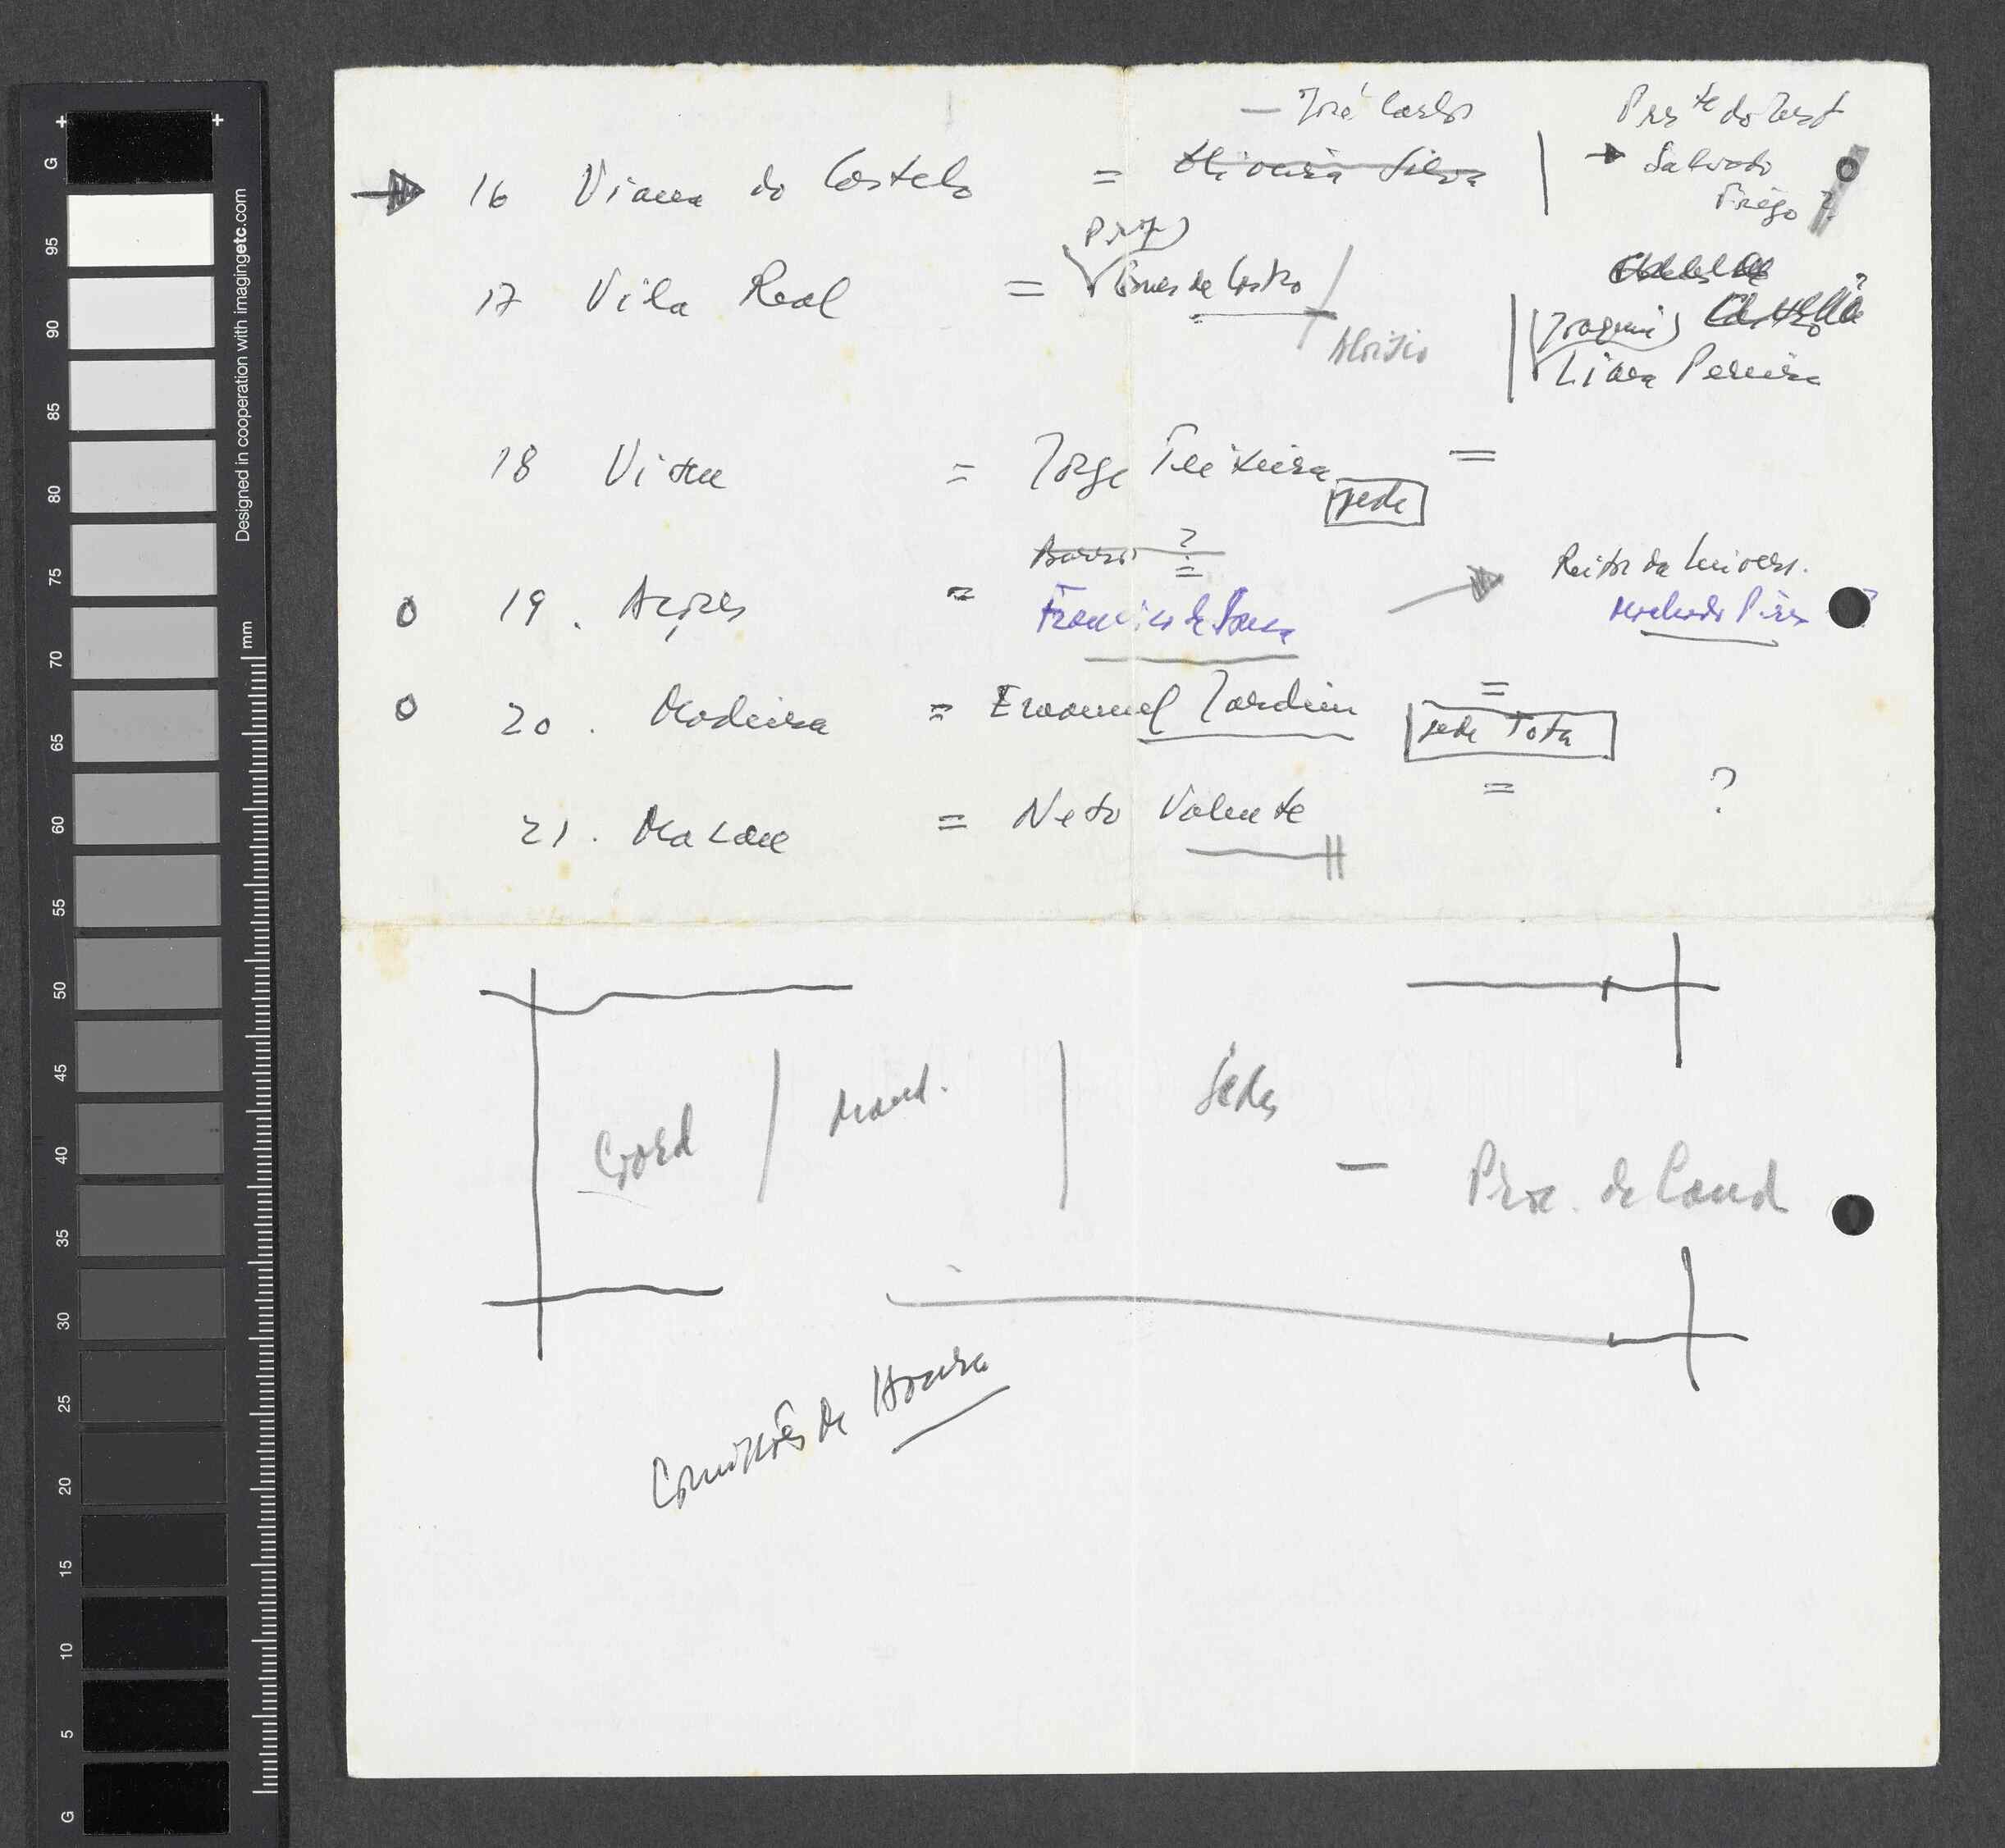 – José Carlos
Pres te do Inst
→ 16 Viana do Castelo = Oliveira Silva | → Salvato
Trigo ?
Prof
17 Vila Real = Nunes de Castro /
Aloísio
Joaquim
Lima Pereira
18 Viseu = Jorge Teixeira =
sede
Barros ?
Reitor da Univers.
19. Açores = Francisco de Sousa
Machado Pires ?
20. Madeira = Emanuel Jardim =
sede Tota
21. Macau = Neto Valente = ?
Coord / Mand. | Sedes
– Proc. de Cand
Comissões de Honra
G
95
90
85
80
75
70
65
60
55
50
45
40
35
30
25
20
15
10
5
G
mm
Designed in cooperation with imagingetc.com